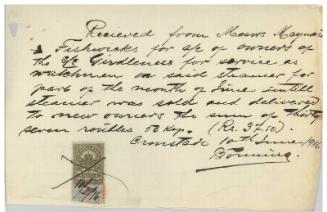 Received from Messrs Maynard
& Fishwicks for a/c of owners of
the S/S Girdleness for service as
watchmen on said steamer for
part of the month of June untill
steamer was sold and delivered
to new owners the sum of thirty
seven roubles 50 kop. (Rs. 37.50).
Cronstadt 10th June 1916